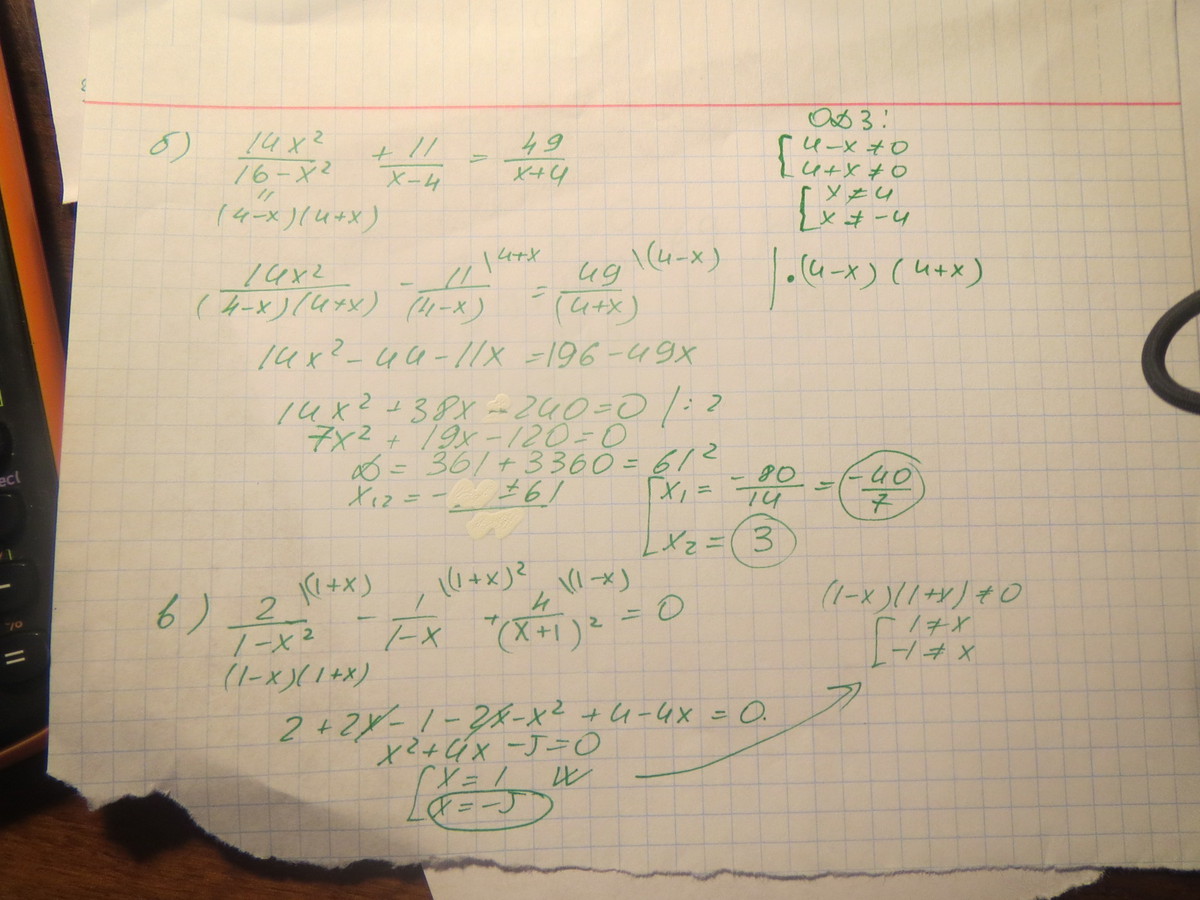 б) 14x²/(16-x²) + 11/(x-4) = 49/(x+4)
(4-x)(4+x)
ОДЗ:
[ 4-x≠0
4+x≠0
[ x≠4
x≠-4
14x²/((4-x)(4+x)) - 11/(4-x) \4+x = 49/(4+x) \(4-x) | •(4-x)(4+x)
14x²-44-11x=196-49x
14x²+38x-240=0 /:2
7x²+19x-120=0
D=361+3360=61²
x₁,₂=- ±61
[ x₁=-80/14=-40/7
x₂=3
в) 2/(1-x²) \(1+x) - 1/(1-x) \(1+x)² + 4/(x+1)² \(1-x) = 0
(1-x)(1+x)
(1-x)(1+x)≠0
[ 1≠x
-1≠x
2+2x-1-2x-x²+4-4x=0.
x²+4x-5=0
[ x=1
x=-5